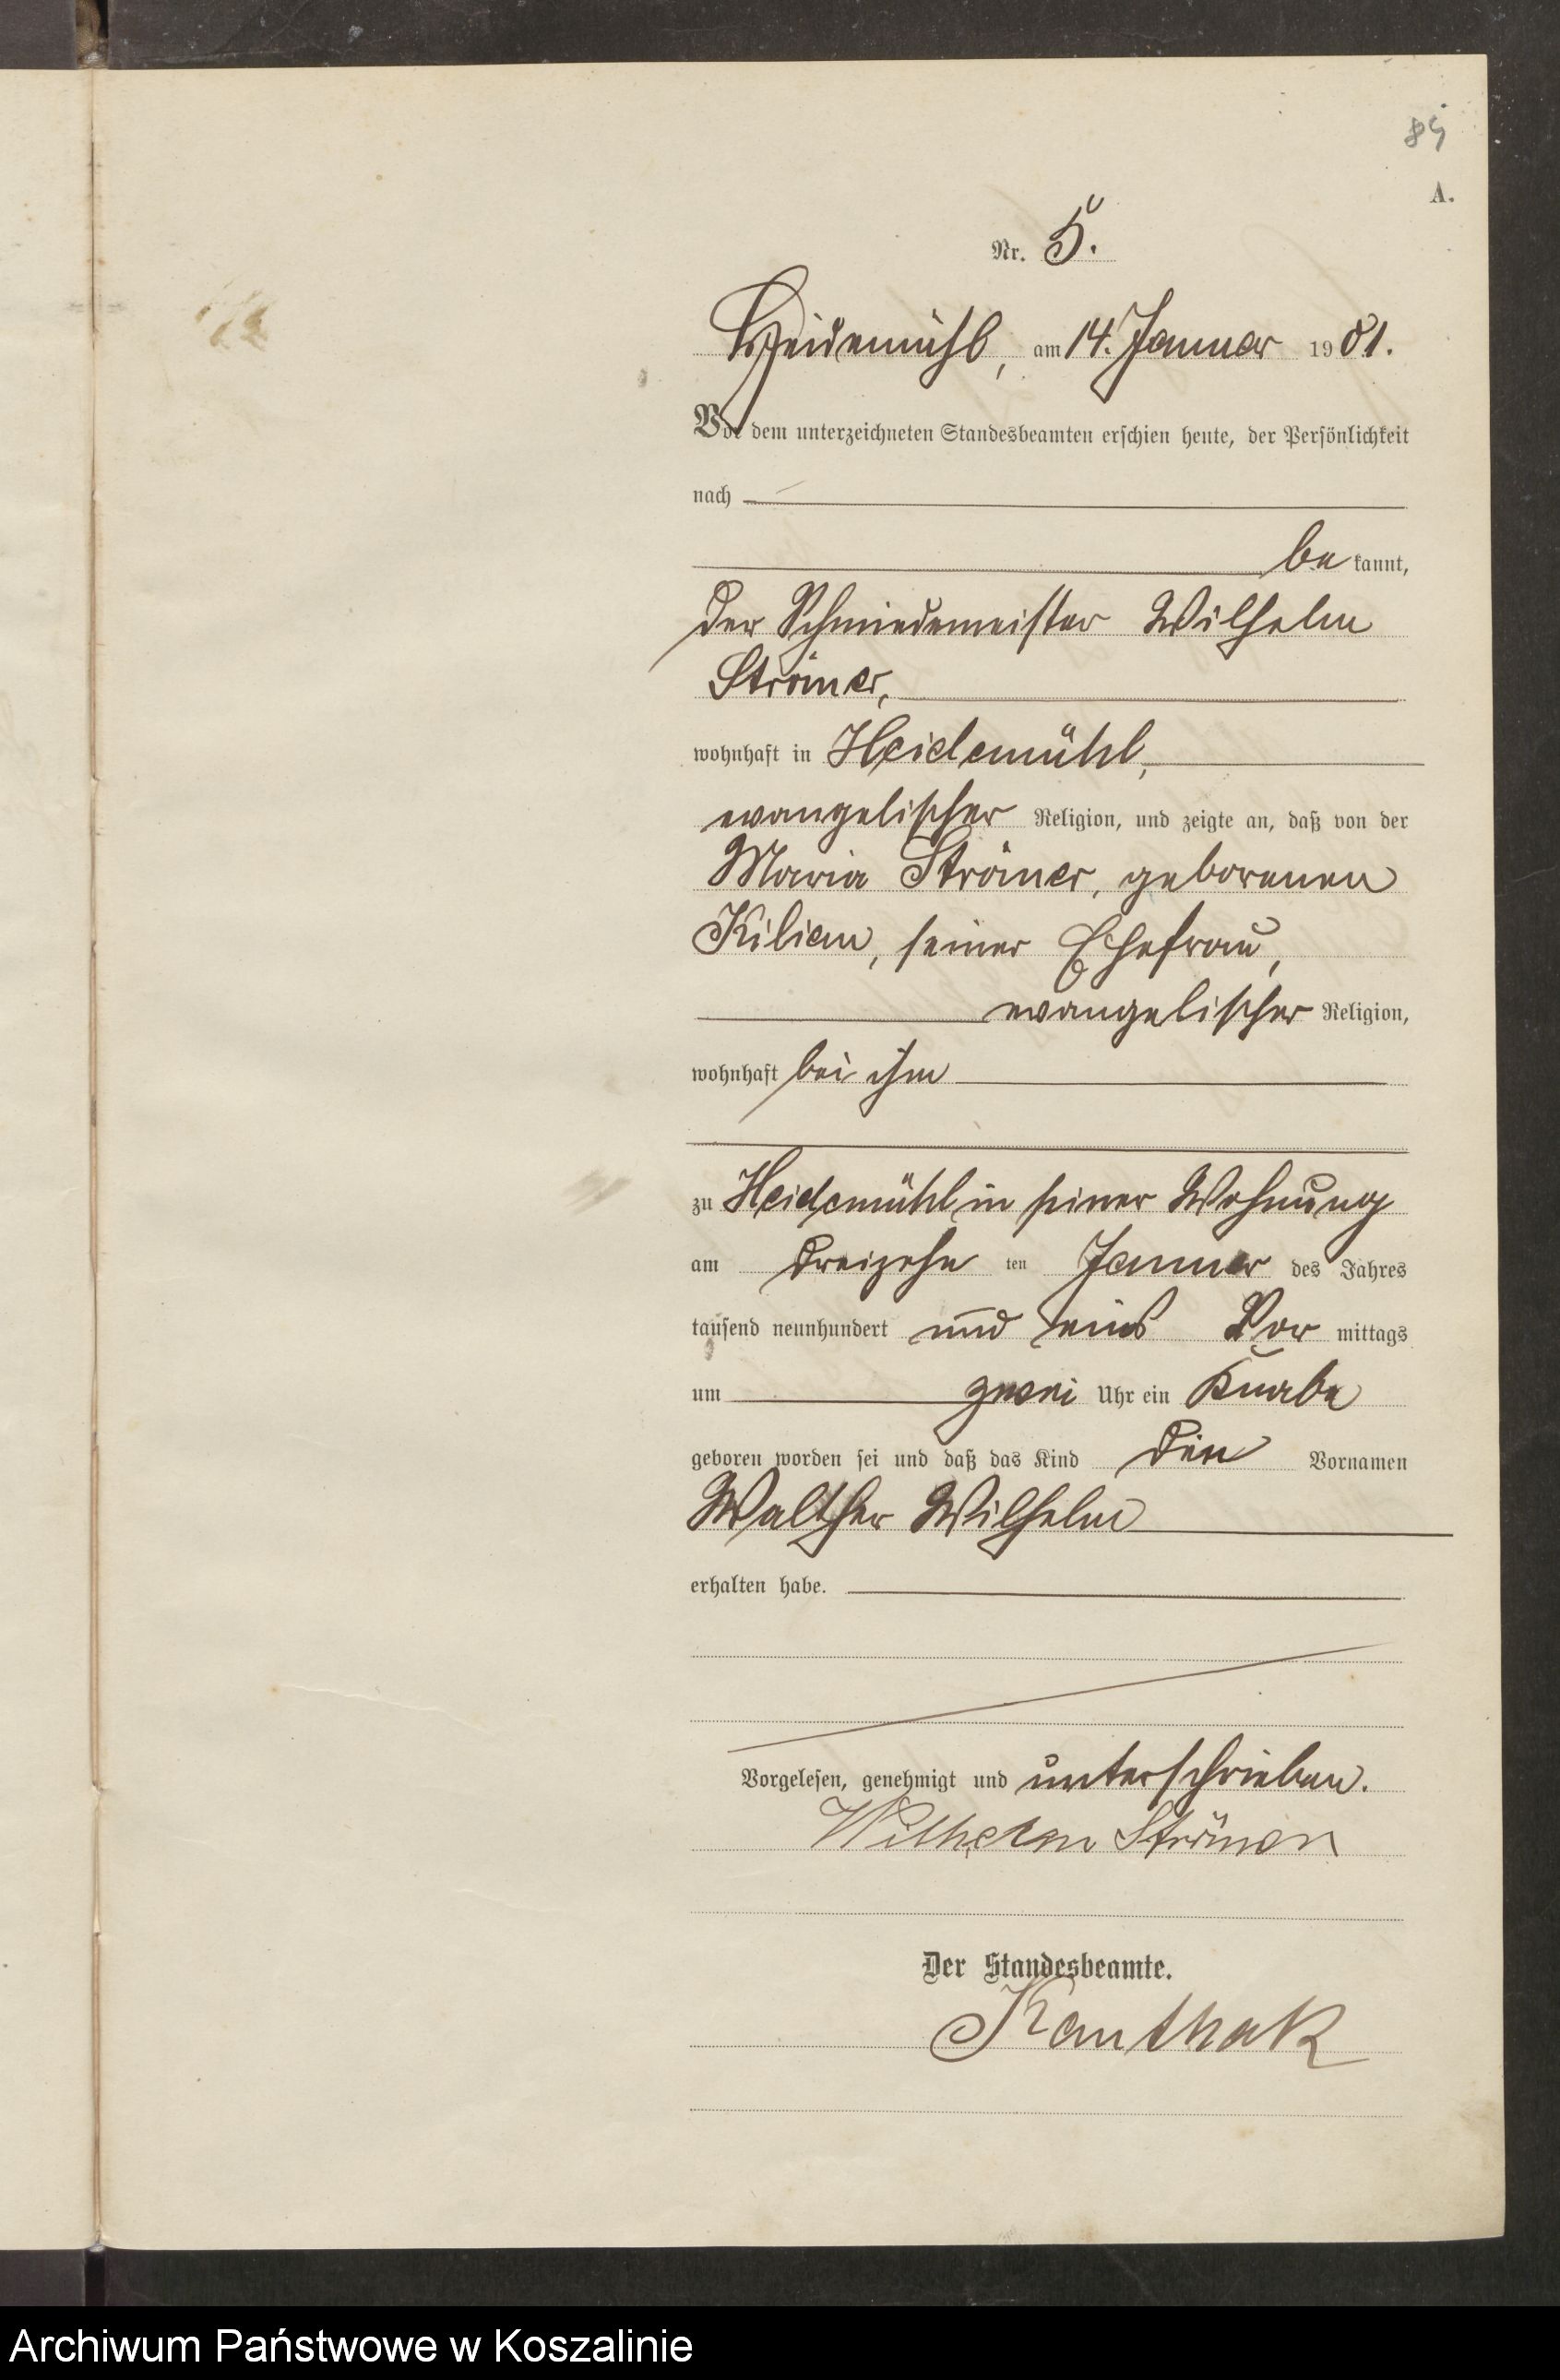 85
A.
Nr. 5.
Heidemühl, am 14. Januar 1901.
Vor dem unterzeichneten Standesbeamten erschien heute, der Persönlichkeit
nach
be kannt,
der Schmiedemeister Wilhelm
Strömer,
wohnhaft in Heidemühl,
evangelischer Religion, und zeigte an, daß von der
Maria Strömer, geborenen
Kilian, seiner Ehefrau,
evangelischer Religion,
wohnhaft bei ihm
zu Heidemühl in seiner Wohnung
am dreizehn ten Januar des Jahres
tausend neunhundert und eins Vor mittags
um zwei Uhr ein Knabe
geboren worden sei und daß das Kind den Vornamen
Walther Wilhelm
erhalten habe.
Vorgelesen, genehmigt und unterschrieben.
Wilhelm Strömer
Der Standesbeamte.
Kanthak
Archiwum Państwowe w Koszalinie